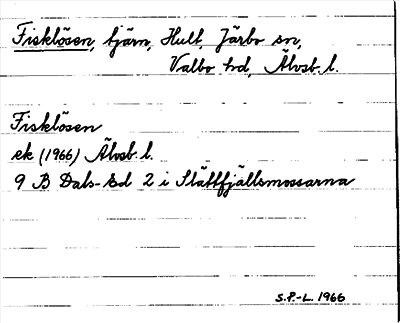 Fisklösen, tjärn, Hult, Järbo sn,
Valbo hd, Älvsb. l.
Fisklösen
ek (1966) Älvsb. l.
9 B Dals-Ed 2 i Slättfjällsmossarna
S.P.-L. 1966